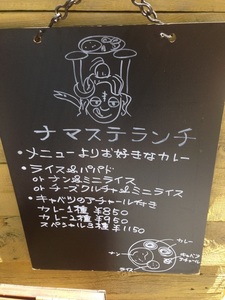 ナマステランチ
・メニューよりお好きなカレー
・ライス&パパド
or ナン&ミニライス
or チーズクルチャ&ミニライス
・キャベツのアチャール付き
カレー1種 ¥850
カレー2種 ¥950
スペシャル3種 ¥1150
カレー
ナン
キャベツ
ライス